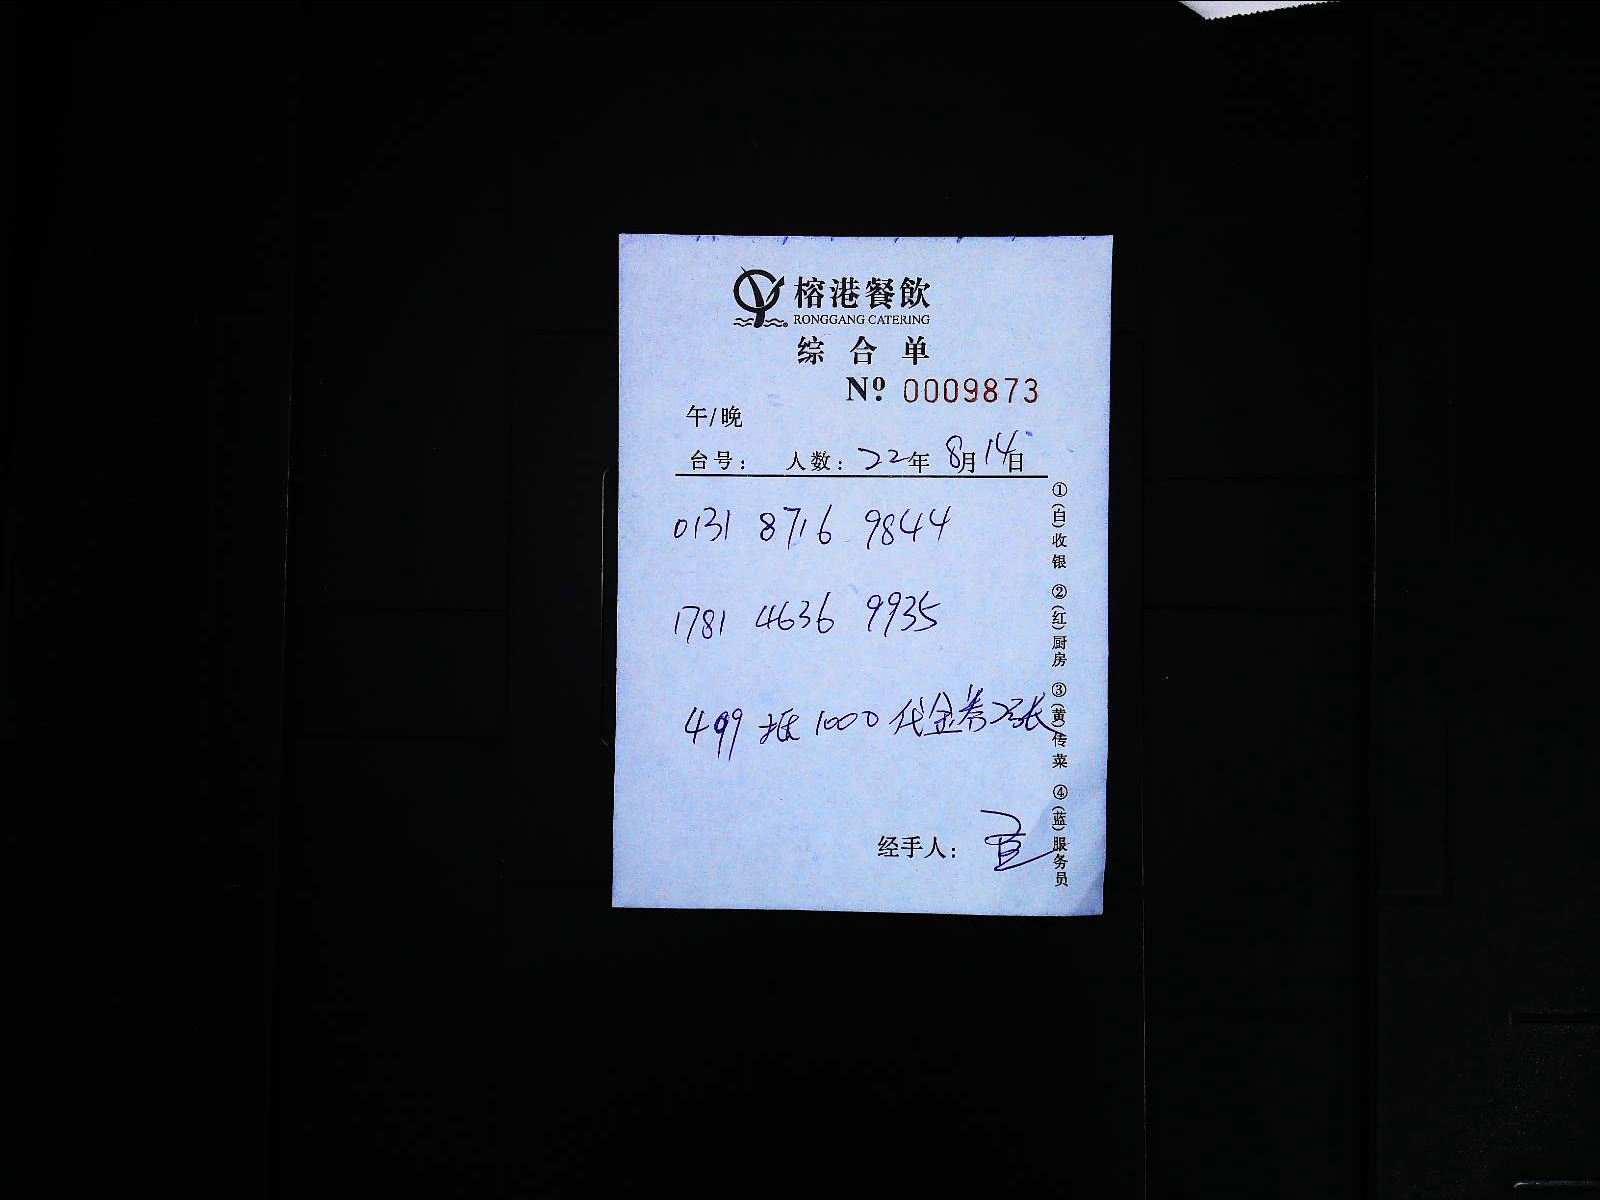 榕港餐飲
RONGGANG CATERING
综合单
Nº 0009873
午/晚
台号: 人数: 22年 8月14日
0131 8716 9844
1781 4636 9935
499 抵 1000 代金券 2张
经手人:
①(白)收银 ②(红)厨房 ③(黄)传菜 ④(蓝)服务员